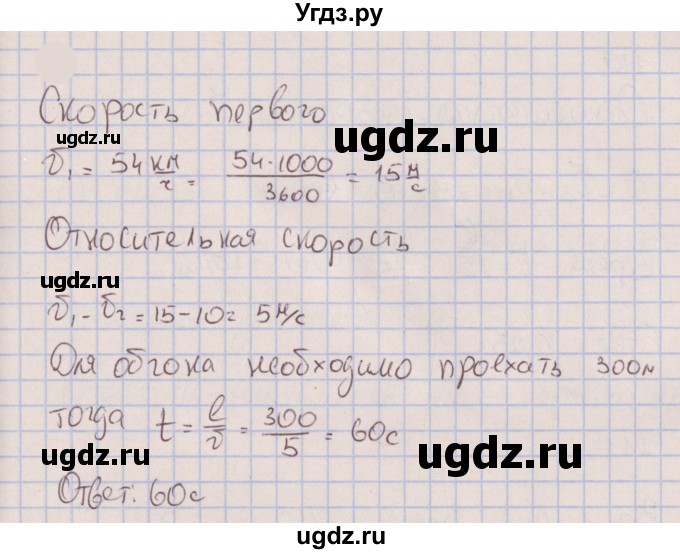 Угдз.ру
Скорость первого
ugdz.ru
ugdz.ru
v₁ = 54 км/ч = 54·1000/3600 = 15 м/с
Относительная скорость
ugdz.ru
ugdz.ru
v₁ - v₂ = 15-10 = 5 м/с
Для обгона необходимо проехать 300м
тогда t = l/v = 300/5 = 60с
ugdz.ru
ugdz.ru
Ответ: 60с
ugdz.ru